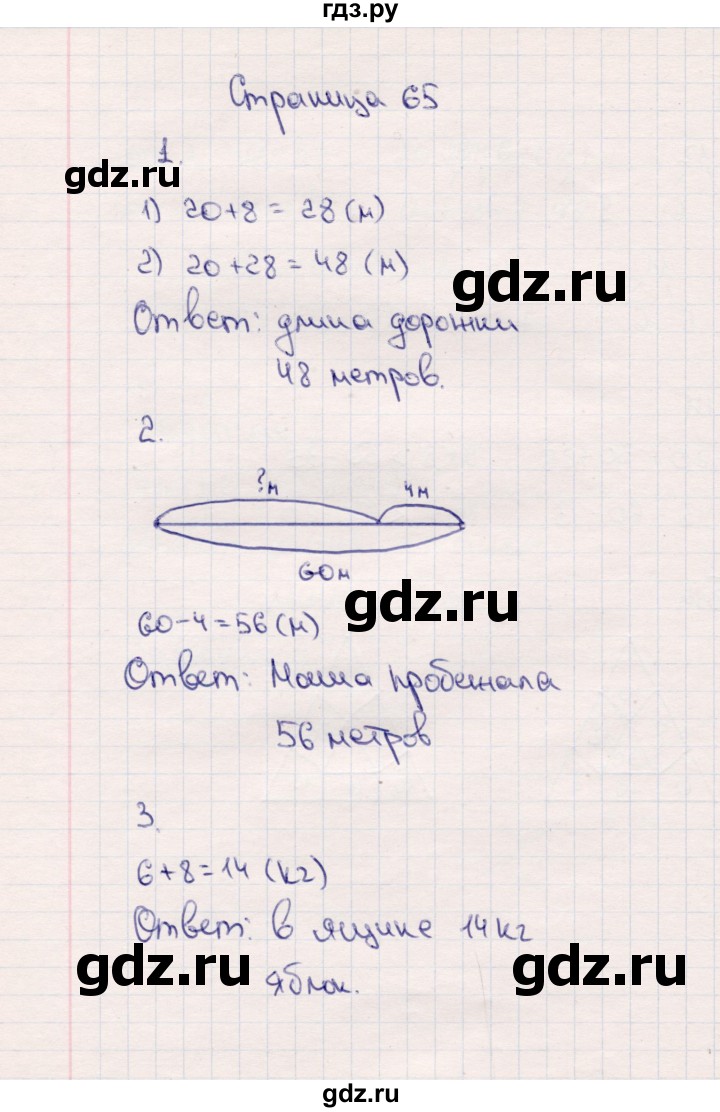 гдз.ру
Страница 65
1.
gdz.ru
1) 20+8=28(м)
2) 20+28=48(м)
gdz.ru
Ответ: длина дорожки
48 метров.
2.
?м 4м
60м
gdz.ru
60-4=56(м)
Ответ: Маша пробежала
56 метров
3.
6+8=14 (кг)
Ответ: в ящике 14кг
gdz.ru
gdz.ru
яблок.
gdz.ru